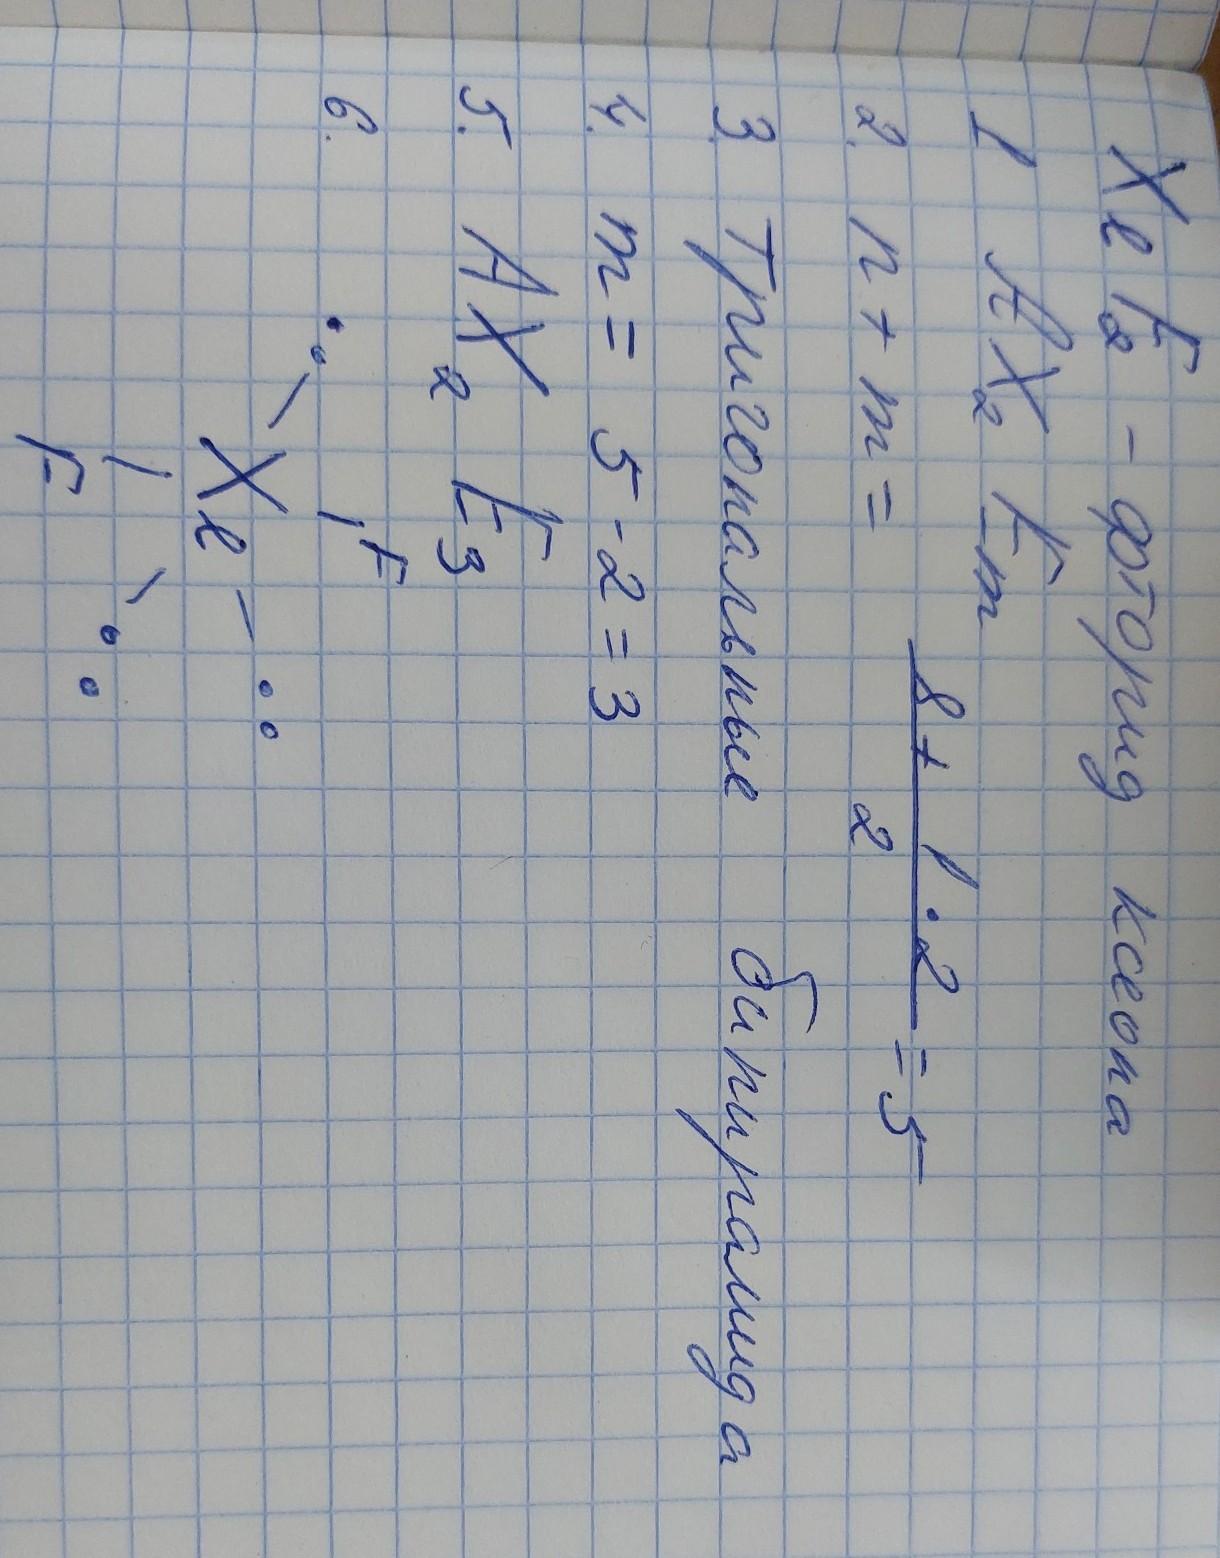 XeF₂ - фторид ксеона
1 AX₂ Em
2. n + m = (8 + 1 · 2) / 2 = 5
3. Тригональные бипирамида
4. m = 5 - 2 = 3
5. AX₂E₃
6.
F
Xe
F